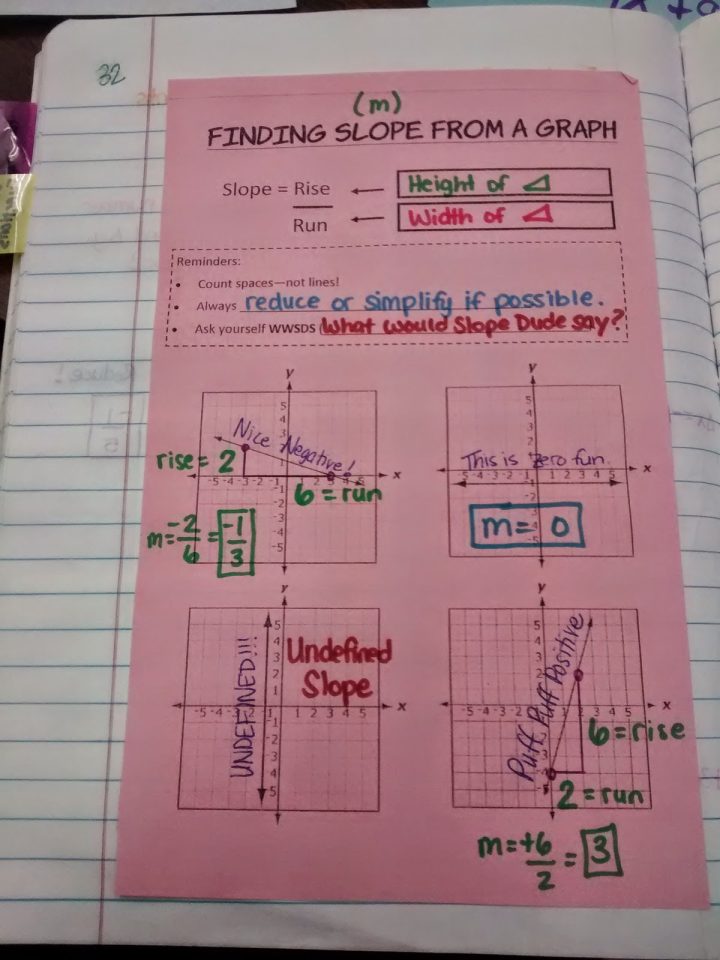 32
(m)
FINDING SLOPE FROM A GRAPH
Slope = Rise
Height of
Run
Width of
Reminders:
• Count spaces—not lines!
• Always reduce or simplify if possible.
• Ask yourself WWSDS (What would Slope Dude say?
y
5
4
3
Nice Negative!
rise = 2
x
-5 -4 -3 -2
6 = run
-1
-2
-3
-4
-5
m = -2/6 = -1/3
y
5
4
3
2
1
This is zero fun.
x
-5 -4 -3 -2 -1 1 2 3 4 5
m = 0
y
5
4
3
2
1
UNDEFINED!!!
Undefined
Slope
x
-5 -4 -3 -2 -1 1 2 3 4 5
-1
-2
-3
-4
-5
y
5
4
3
2
1
Puff Puff Positive
x
-5 -4 -3 -2 1 2 3 4 5
6 = rise
2 = run
m = +6/2 = 3